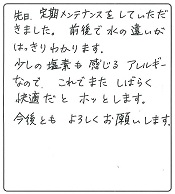 先日、定期メンテナンスをしていただ
きました。前後で水の違いが
はっきりわかります。
少しの塩素も感じるアレルギー
なので、これでまたしばらく
快適だとホッとします。
今後ともよろしくお願いします。